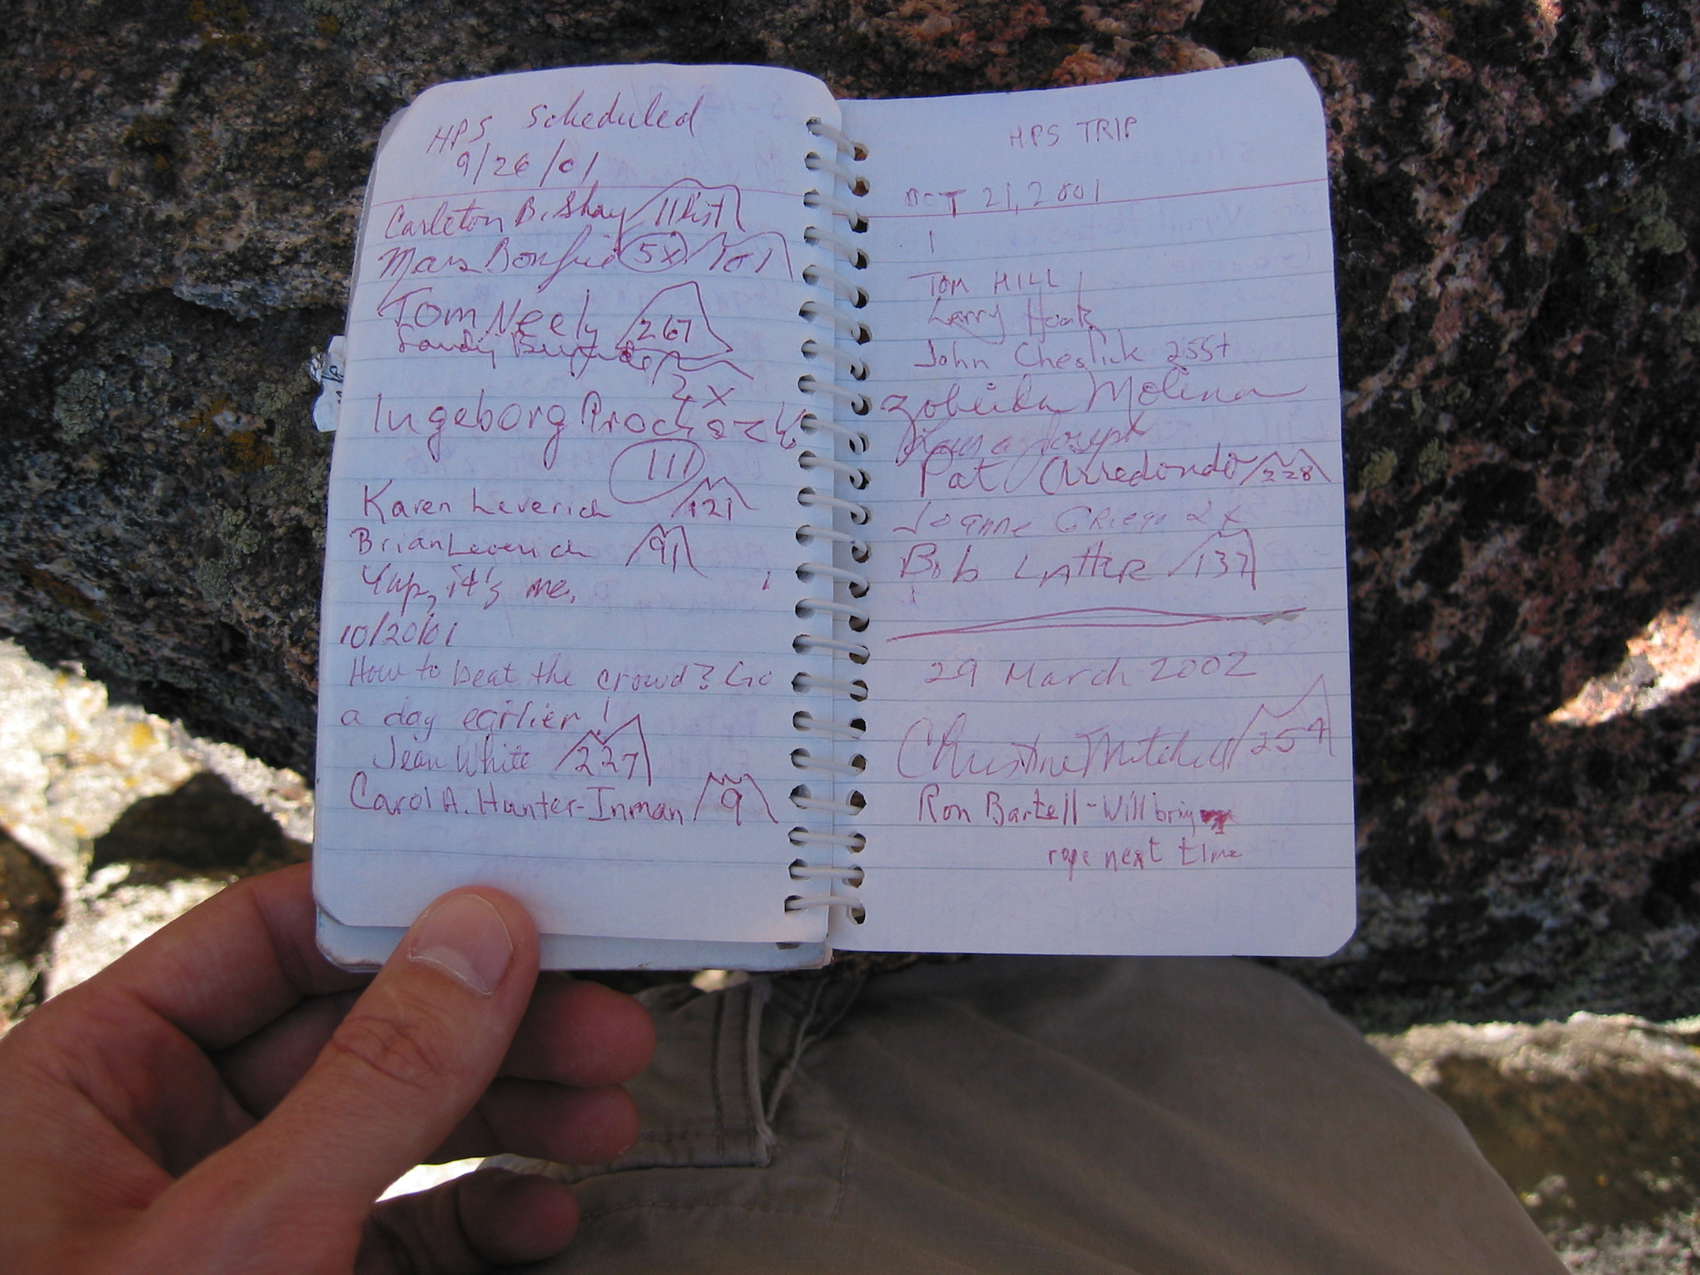 HPS Scheduled
9/26/01
Carleton B. Shay 11 List
Mars Bonfire 5x
Tom Neely 267
Sandy
2x
Ingeborg Prochazka
111
Karen Leverich 121
Brian Leverich 91
Yup, it's me.
10/20/01
How to beat the crowd? Go
a day earlier!
Jean White 227
Carol A. Hunter-Inman 9
HPS TRIP
OCT 21, 2001
TOM HILL
Larry Hoak
John Cheslick 255+
Zobeida Molina
Laura Joseph
Pat Arredondo 228
Joanne Griego 2x
Bob Latter 137
29 March 2002
Christine Mitchell 254
Ron Bartell - Will bring
rope next time